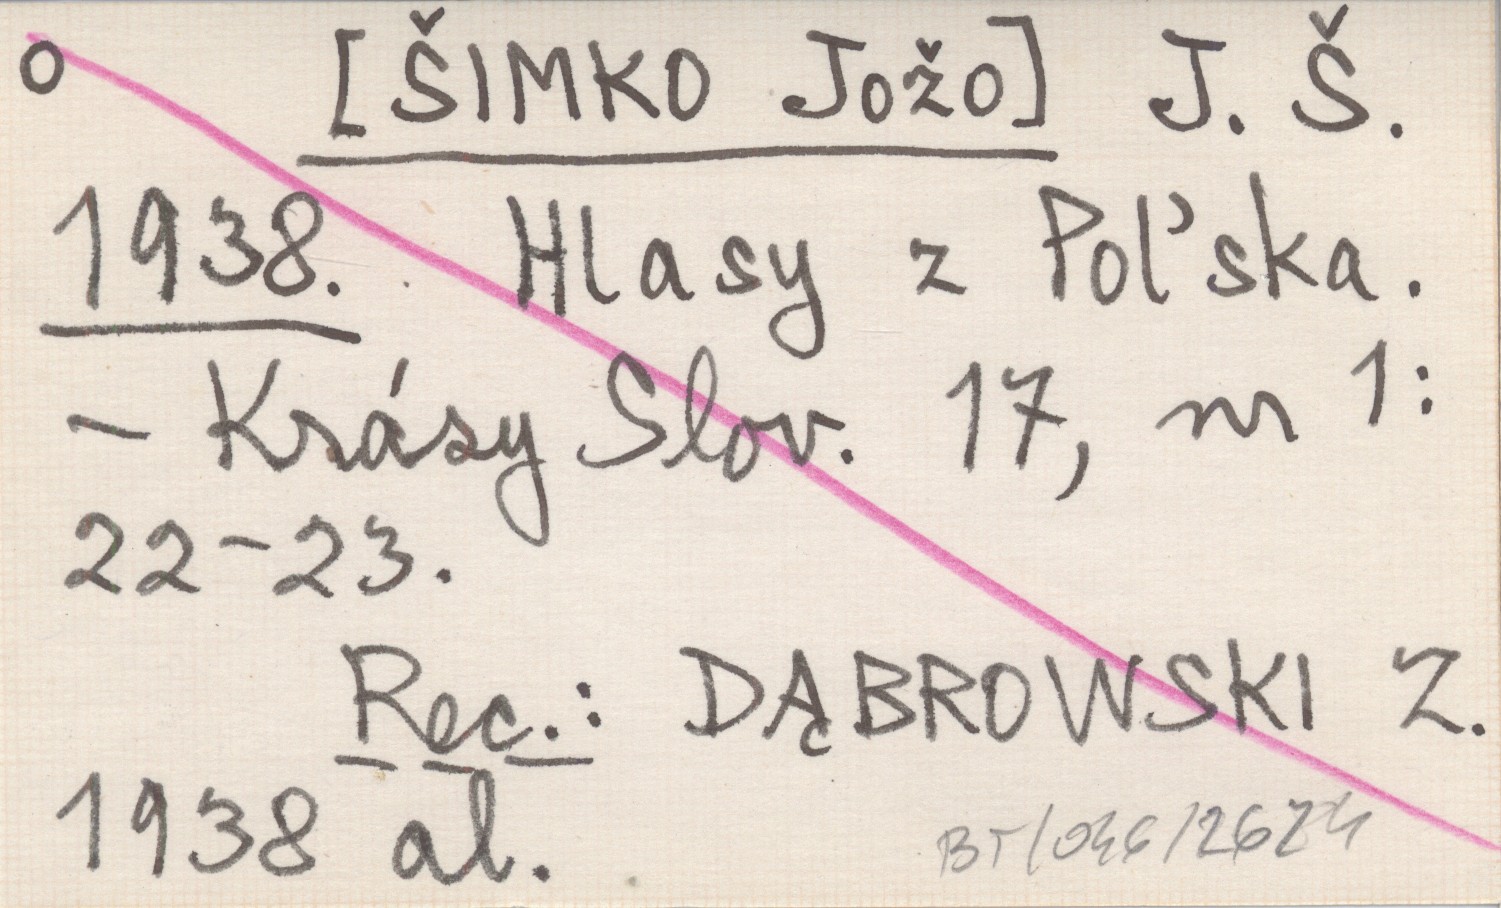 o [ŠIMKO Jožo] J. Š.
1938. Hlasy z Poľska.
- Krásy Slov. 17, nr 1:
22-23.
Rec.: DĄBROWSKI Z.
1938 al.